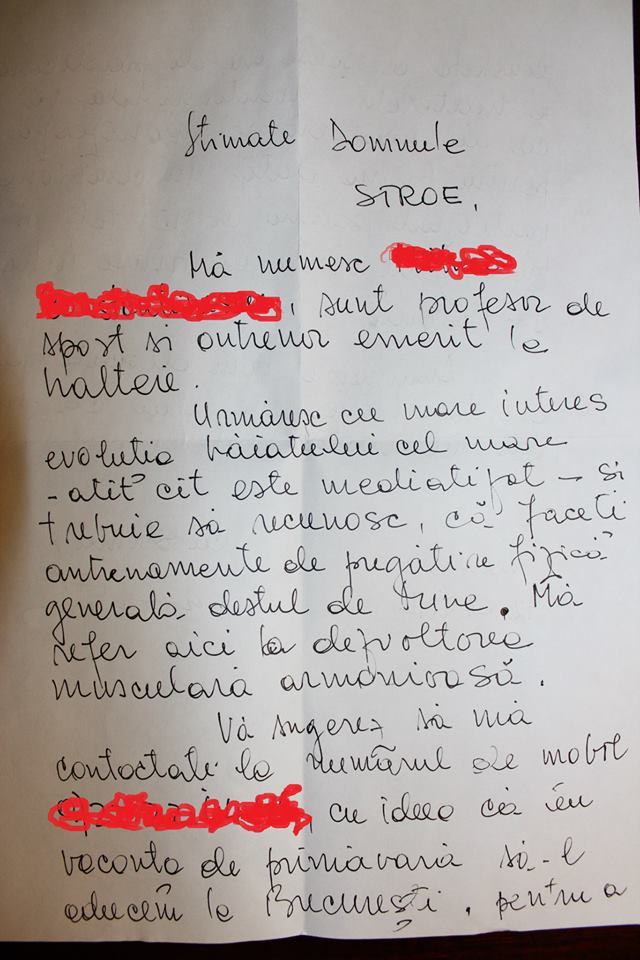 Stimate Domnule
STROE,
Mă numesc
, sunt profesor de
sport si antrenor emerit la
haltere.
Urmăresc cu mare interes
evolutia băiatului cel mare
- atît cît este mediatizat - si
trebuie să recunosc, că faceti
antrenamente de pregătire fizică
generală destul de bune. Mă
refer aici la dezvoltarea
musculară armonioasă.
Vă sugerez să mă
contactati la numărul de mobil
, cu ideea ca în
vacanta de primăvară să-l
aducem la București, pentru a